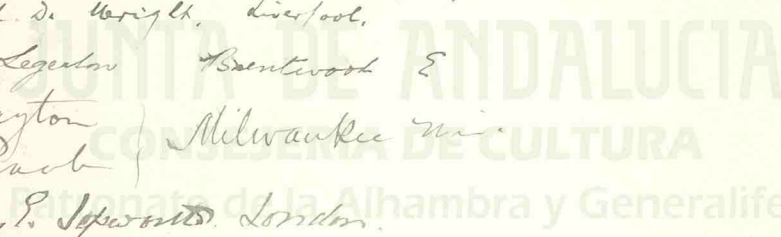 D. Wright. Liverpool.
Legerton Brentwood E
Milwaukee Wis.
E. London.
JUNTA DE ANDALUCIA
CONSEJERIA DE CULTURA
Patronato de la Alhambra y Generalife